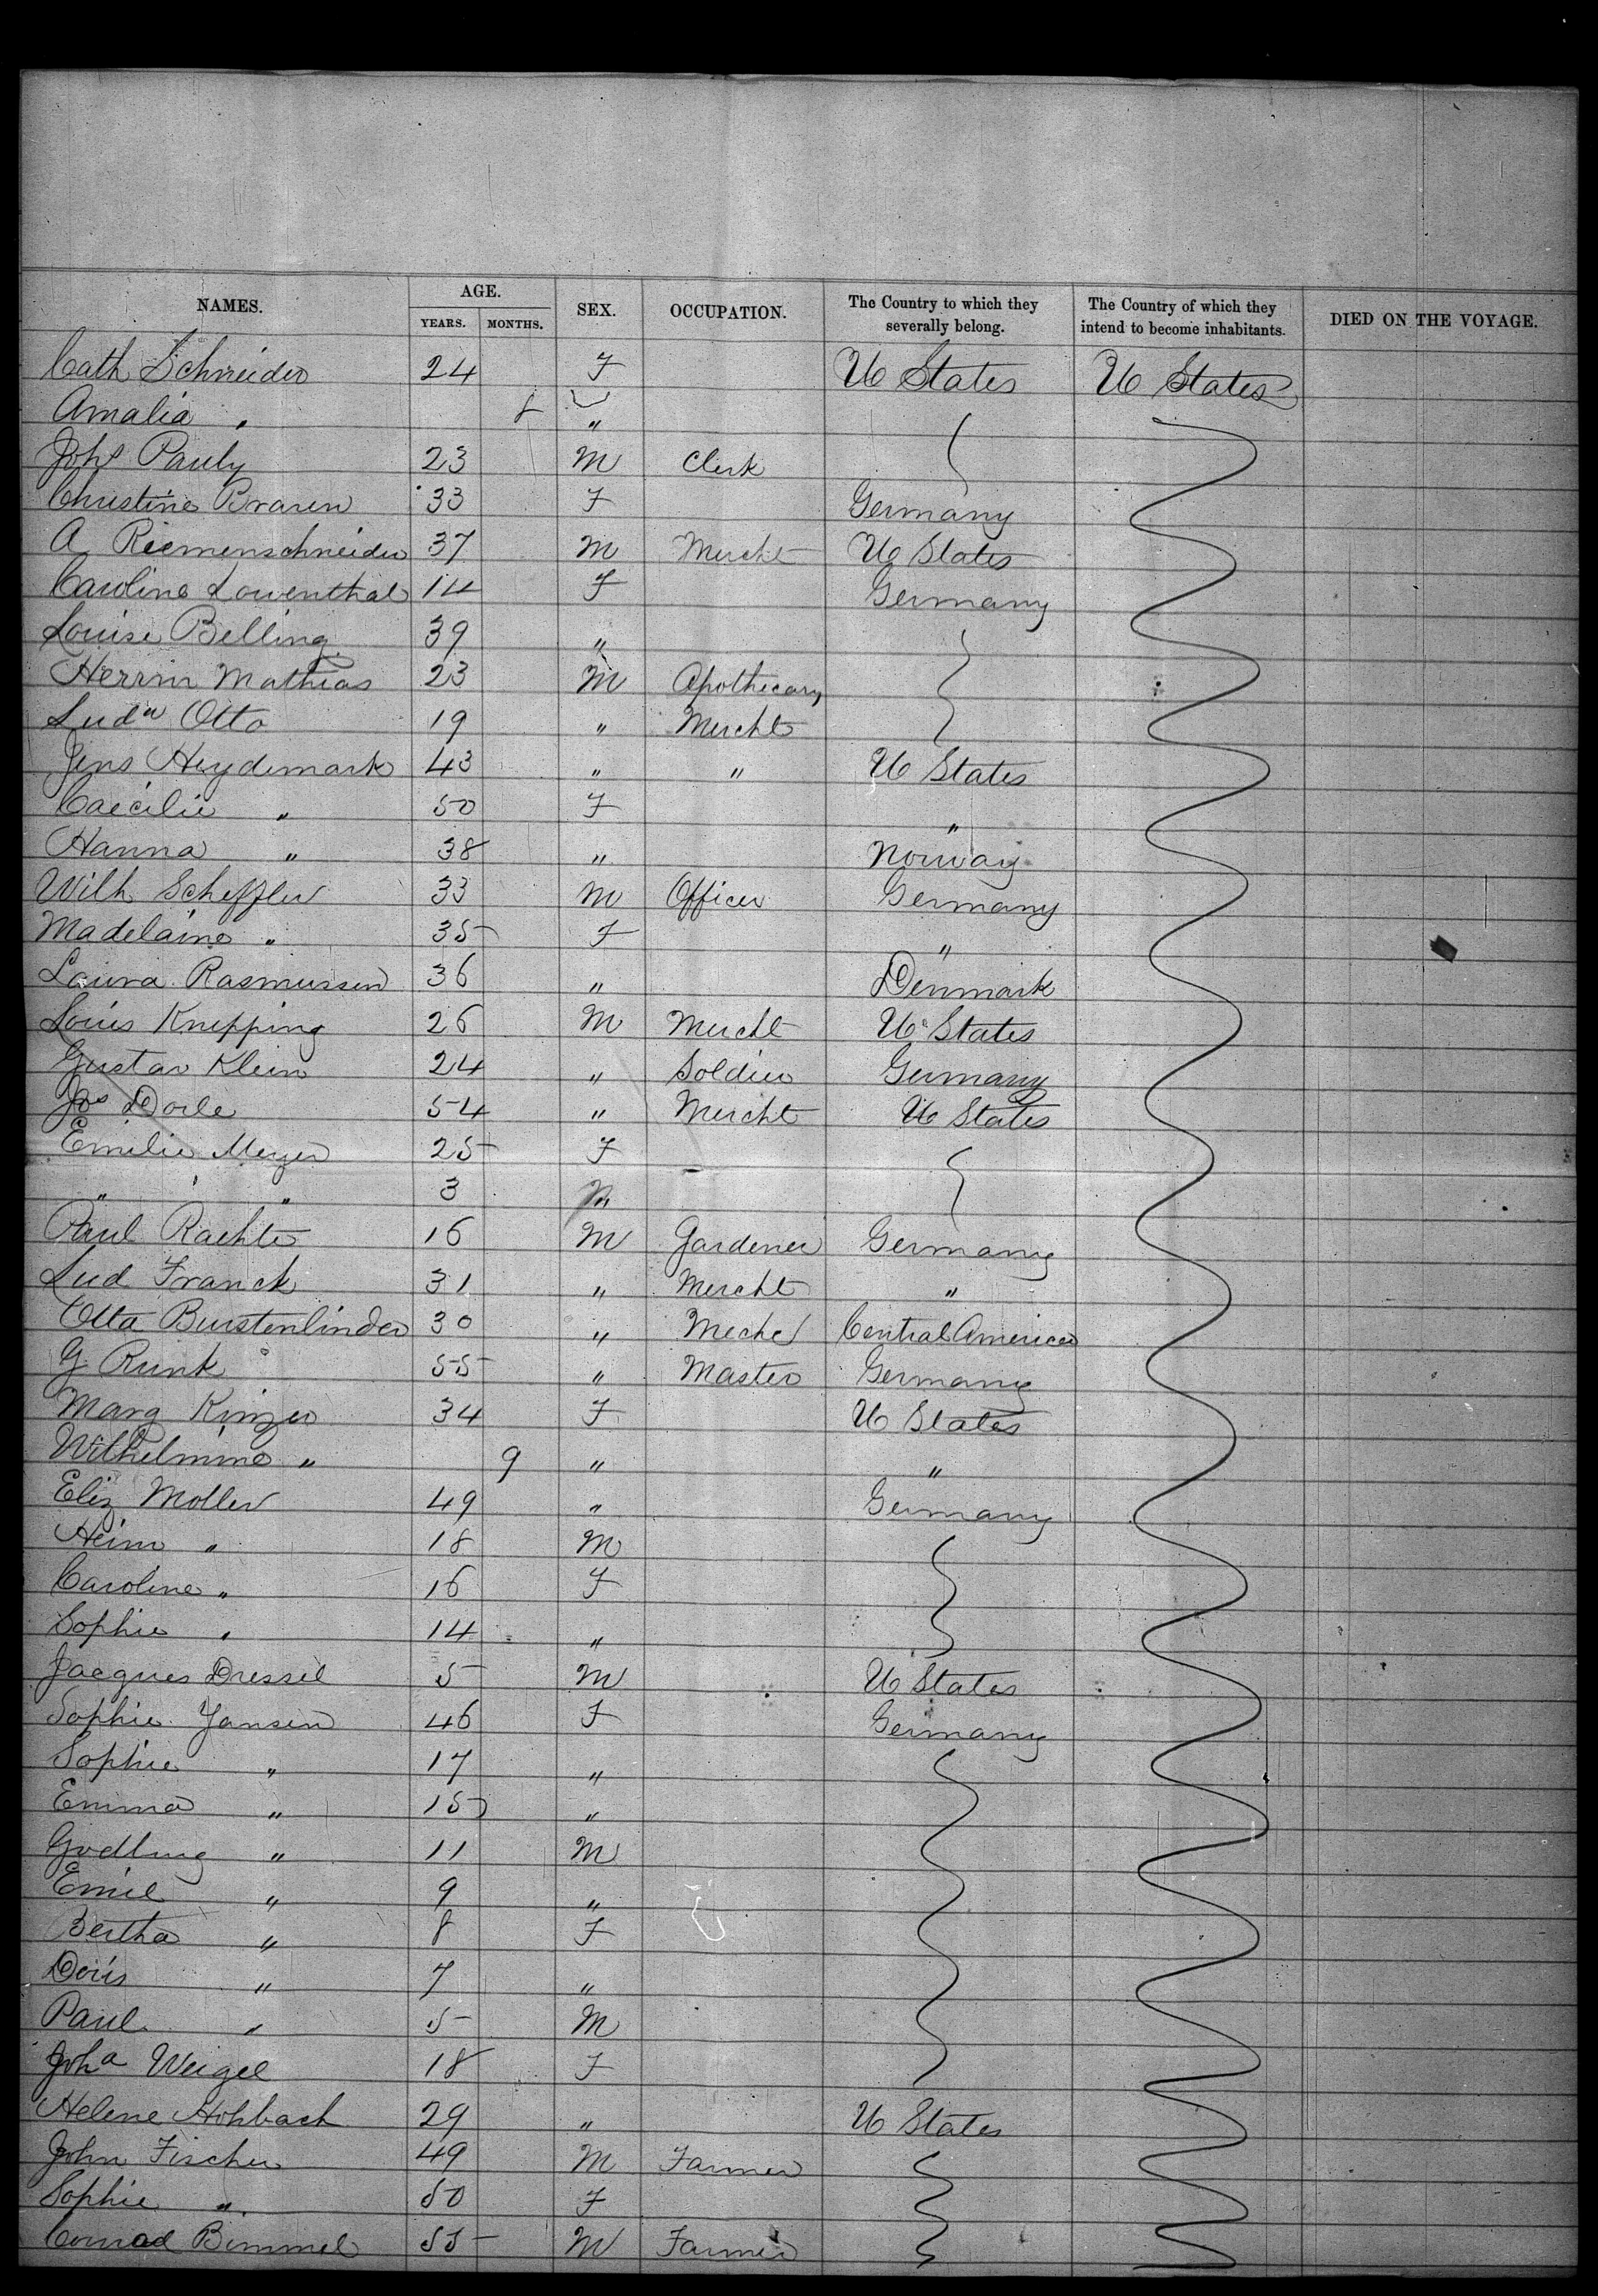 NAMES. AGE. SEX. OCCUPATION. The Country to which they severally belong. The Country of which they intend to become inhabitants. DIED ON THE VOYAGE.
YEARS. MONTHS.
Cath Schneider 24 F U States U States
Amalia " 8 "
Johs Pauly 23 M Clerk
Christine Braren 33 F Germany
A Riemenschneider 37 M Mercht U States
Caroline Lowenthal 14 F Germany
Louise Belling 39 "
Herrm Mathias 23 M Apothecary
Ludw Otto 19 " Mercht
Jens Heydemark 43 " " U States
Caecilie " 50 F "
Hanna " 38 " Norway
Wilh Scheffler 33 M Officer Germany
Madelaine " 35 F "
Laura Rasmussen 36 " Denmark
Louis Knepping 26 M Mercht U States
Gustav Klein 24 " Soldier Germany
Jos Dorle 54 " Mercht U States
Emilie Meyer 25 F
" " 3 "
Paul Raehte 16 M Gardener Germany
Lud Franck 31 " Mercht "
Otto Burstenlinder 30 " Mechc Central America
G Runk 55 " Master Germany
Marg Kinzer 34 F U States
Wilhelmine " 9 " "
Eliz Moller 49 " Germany
Heinr " 18 M
Caroline " 16 F
Sophie " 14 "
Jacques Dressel 5 M U States
Sophie Jansen 46 F Germany
Sophie " 17 "
Emma " 15 "
" 11 M
Emil " 9 "
Bertha " 8 F
Doris " 7 "
Paul " 5 M
Joha Weigel 18 F
Helene Hohbach 29 " U States
John Fischer 49 M Farmer
Sophie " 50 F
Conrad Bimmel 55 M Farmer